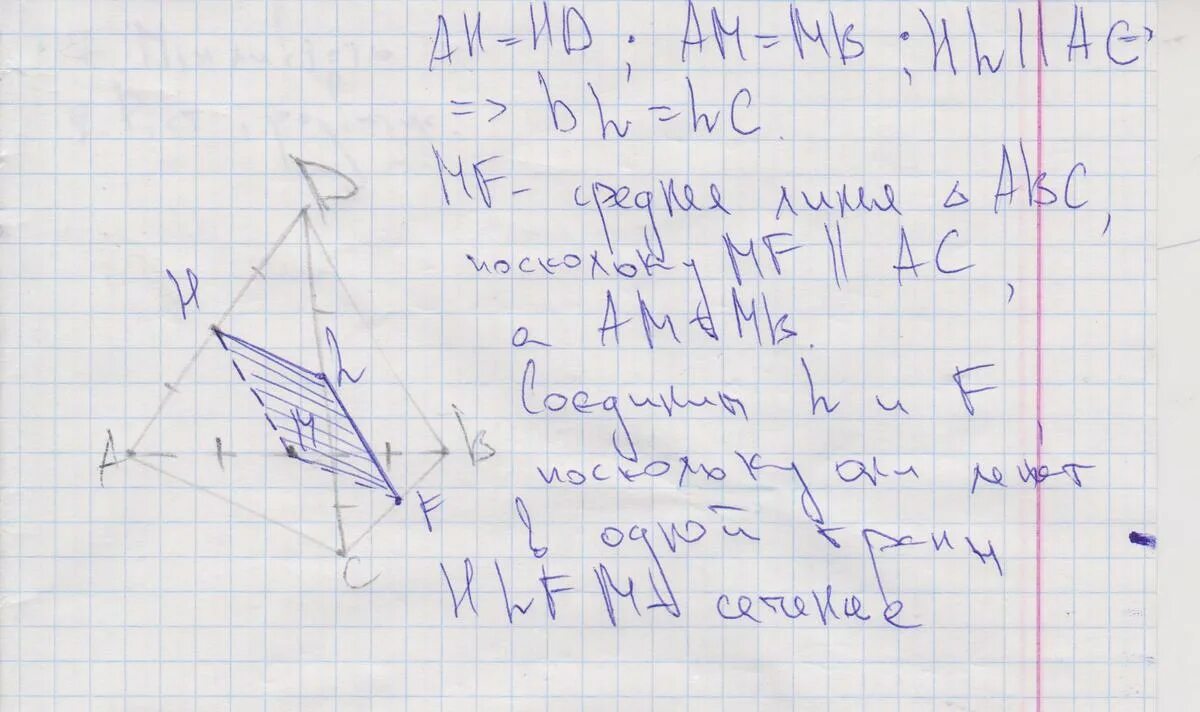 AH=HD; AM=MB; HL||AC=>
=> DL=LC.
MF- средняя линия △ ABC,
поскольку MF || AC,
а AM=MB.
Соединим L и F
поскольку они лежат
в одной грани
HLFM сечение
D
H
L
A
M
B
F
C